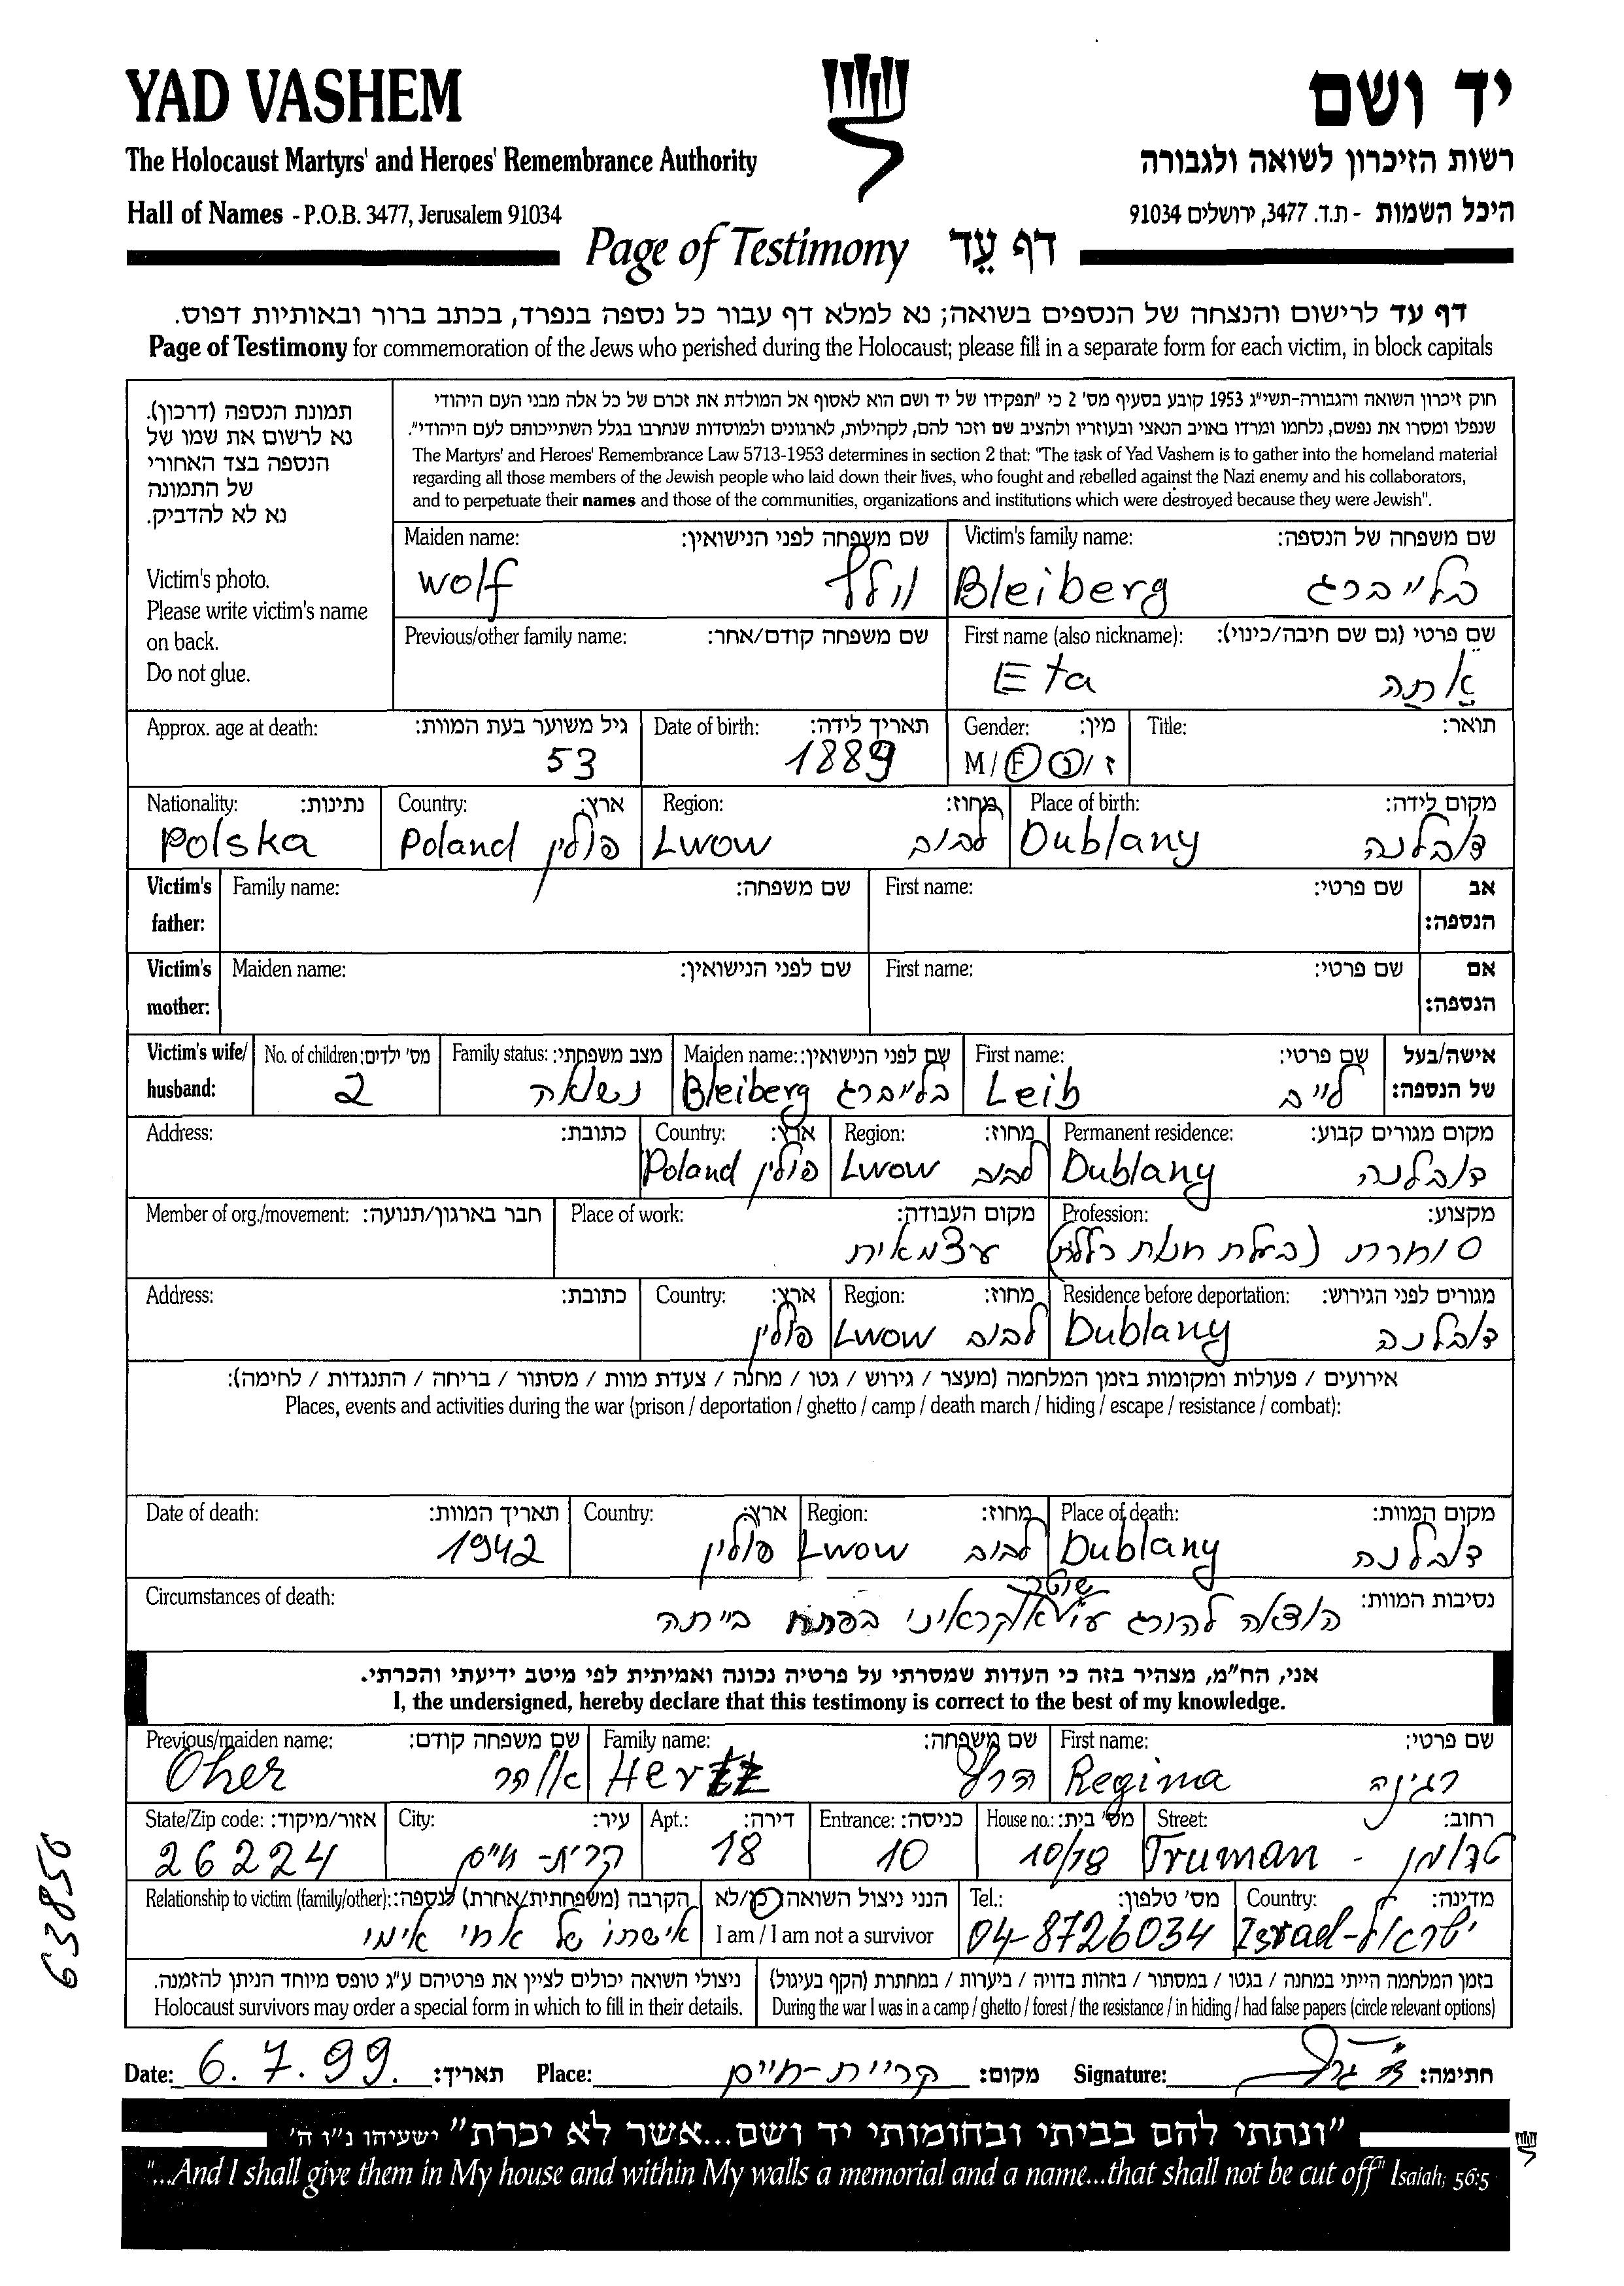 YAD VASHEM
יד ושם
The Holocaust Martyrs' and Heroes' Remembrance Authority
רשות הזיכרון לשואה ולגבורה
Hall of Names - P.O.B. 3477, Jerusalem 91034
היכל השמות - ת.ד. 3477, ירושלים 91034
Page of Testimony דף עֵד
דף עד לרישום והנצחה של הנספים בשואה; נא למלא דף עבור כל נספה בנפרד, בכתב ברור ובאותיות דפוס.
Page of Testimony for commemoration of the Jews who perished during the Holocaust; please fill in a separate form for each victim, in block capitals
תמונת הנספה (דרכון).
נא לרשום את שמו של
הנספה בצד האחורי
של התמונה
נא לא להדביק.
Victim's photo.
Please write victim's name
on back.
Do not glue.
חוק זיכרון השואה והגבורה-תשי"ג 1953 קובע בסעיף מס' 2 כי "תפקידו של יד ושם הוא לאסוף אל המולדת את זכרם של כל אלה מבני העם היהודי
שנפלו ומסרו את נפשם, נלחמו ומרדו באויב הנאצי ובעוזריו ולהציב שם וזכר להם, לקהילות, לארגונים ולמוסדות שנחרבו בגלל השתייכותם לעם היהודי".
The Martyrs' and Heroes' Remembrance Law 5713-1953 determines in section 2 that: "The task of Yad Vashem is to gather into the homeland material
regarding all those members of the Jewish people who laid down their lives, who fought and rebelled against the Nazi enemy and his collaborators,
and to perpetuate their names and those of the communities, organizations and institutions which were destroyed because they were Jewish".
Maiden name: שם משפחה לפני הנישואין:
wolf וולף
Victim's family name: שם משפחה של הנספה:
Bleiberg בלייברג
Previous/other family name: שם משפחה קודם/אחר:
First name (also nickname): שם פרטי (גם שם חיבה/כינוי):
Eta אתה
Approx. age at death: גיל משוער בעת המוות:
53
Date of birth: תאריך לידה:
1889
Gender: מין:
M/F נ/ז
Title: תואר:
Nationality: נתינות:
Polska
Country: ארץ:
Poland פולין
Region: מחוז:
Lwow לבוב
Place of birth: מקום לידה:
Dublany דובלנה
Victim's father: Family name: שם משפחה: First name: שם פרטי: אב הנספה:
Victim's mother: Maiden name: שם לפני הנישואין: First name: שם פרטי: אם הנספה:
Victim's wife/ husband:
No. of children: מס' ילדים:
2
Family status: מצב משפחתי:
נשואה
Maiden name: שם לפני הנישואין:
Bleiberg בלייברג
First name: שם פרטי:
Leib לייב
אישה/בעל של הנספה:
Address: כתובת:
Country: ארץ:
Poland פולין
Region: מחוז:
Lwow לבוב
Permanent residence: מקום מגורים קבוע:
Dublany דובלנה
Member of org./movement: חבר בארגון/תנועה:
Place of work: מקום העבודה:
עצמאית
Profession: מקצוע:
סוחרת (בעלת חנות כללית)
Address: כתובת:
Country: ארץ:
פולין
Region: מחוז:
Lwow לבוב
Residence before deportation: מגורים לפני הגירוש:
Dublany דובלנה
אירועים / פעולות ומקומות בזמן המלחמה (מעצר / גירוש / גטו / מחנה / צעדת מוות / מסתור / בריחה / התנגדות / לחימה):
Places, events and activities during the war (prison / deportation / ghetto / camp / death march / hiding / escape / resistance / combat):
Date of death: תאריך המוות:
1942
Country: ארץ:
פולין
Region: מחוז:
Lwow לבוב
Place of death: מקום המוות:
Dublany דובלנה
Circumstances of death: נסיבות המוות:
הוצאה להורג ע"י שוטר אוקראיני בפתח בייתה
אני, הח"מ, מצהיר בזה כי העדות שמסרתי על פרטיה נכונה ואמיתית לפי מיטב ידיעתי והכרתי.
I, the undersigned, hereby declare that this testimony is correct to the best of my knowledge.
Previous/maiden name: שם משפחה קודם:
Oher אוהר
Family name: שם משפחה:
Hertz הרץ
First name: שם פרטי:
Regina רגינה
State/Zip code: אזור/מיקוד:
26224
City: עיר:
קרית-חיים
Apt.: דירה:
18
Entrance: כניסה:
10
House no.: מס' בית:
10/18
Street: רחוב:
Truman - טרומן
Relationship to victim (family/other): הקרבה (משפחתית/אחרת) לנספה:
אישתו של אחי אימי
הנני ניצול השואה: כן/לא
I am / I am not a survivor
Tel.: מס' טלפון:
04-8726034
Country: מדינה:
Israel-ישראל
ניצולי השואה יכולים לציין את פרטיהם ע"ג טופס מיוחד הניתן להזמנה.
Holocaust survivors may order a special form in which to fill in their details.
בזמן המלחמה הייתי במחנה / בגטו / במסתור / בזהות בדויה / ביערות / במחתרת (הקף בעיגול)
During the war I was in a camp / ghetto / forest / the resistance / in hiding / had false papers (circle relevant options)
Date: 6.7.99. תאריך: Place: קריית-חיים מקום: Signature: חתימה:
"ונתתי להם בביתי ובחומותי יד ושם...אשר לא יכרת" ישעיהו נ"ו ה'
"...And I shall give them in My house and within My walls a memorial and a name...that shall not be cut off" Isaiah, 56:5
63850